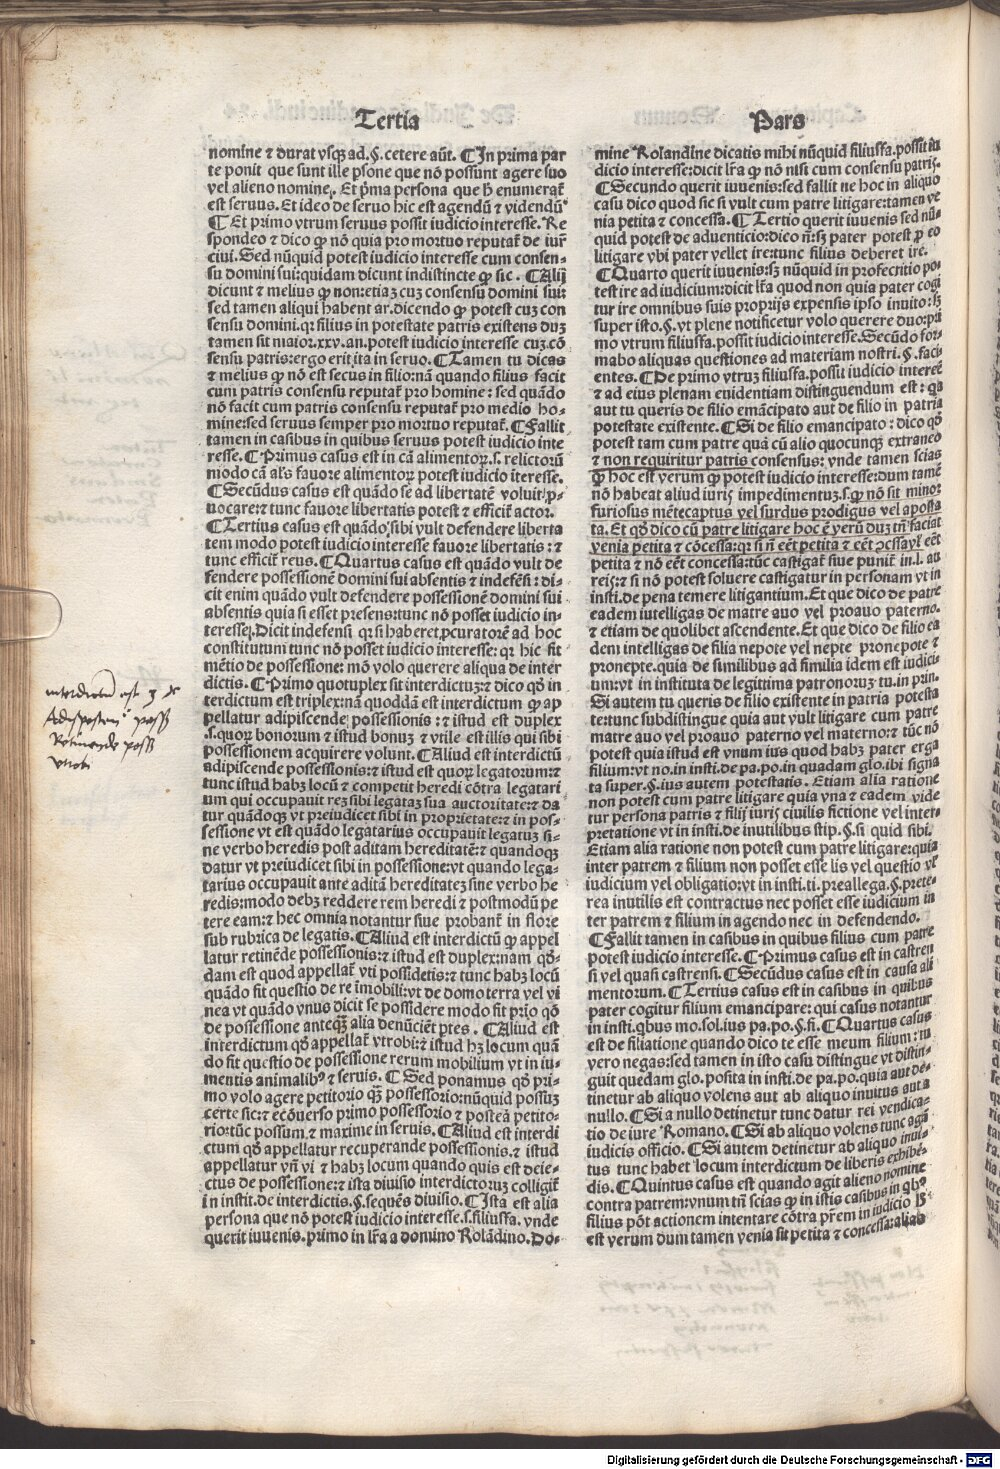 Tertia
nomine ⁊ durat vsqꝫ ad.§.cetere aũt. ¶In prima par
te ponit que sunt ille ꝑsone que nõ possunt agere suo
vel alieno nomine. Et pͥma persona que h̃ enumerat᷑
est seruus. Et ideo de seruo hic est agendũ ⁊ videndũ
¶Et primo vtrum seruus possit iudicio interesse. Re
spondeo ⁊ dico ꝙ nõ quia pro mortuo reputat᷑ de iur̃
ciui. Sed nũquid potest iudicio interesse cum consen-
su domini sui: quidam dicunt indistincte ꝙ sic. ¶Alij
dicunt ⁊ melius ꝙ non: etiaꝫ cuꝫ consensu domini sui:
sed tamen aliqui habent ar. dicendo ꝙ potest cuꝫ con
sensu domini. qꝛ filius in potestate patris existens duꝫ
tamen sit maior.xxv.an.potest iudicio interesse cuꝫ cõ
sensu patris: ergo erit ita in seruo. ¶Tamen tu dicas
⁊ melius ꝙ nõ est secus in filio: nã quando filius facit
cum patris consensu reputat᷑ pro homine: sed quãdo
nõ facit cum patris consensu reputat᷑ pro medio ho-
mine: sed seruus semper pro mortuo reputat᷑. ¶Fallit
tamen in casibus in quibus seruus potest iudicio inte
resse. ¶Primus casus est in cã alimentoꝝ.s. relictorũ
modo cã al's fauore alimentoꝝ potest iudicio ĩteresse.
¶Secũdus casus est quãdo se ad libertatẽ voluit ꝓ-
uocare: ⁊ tunc fauore libertatis potest ⁊ efficit᷑ actor.
¶Tertius casus est quãdo sibi vult defendere liberta
tem modo potest iudicio interesse fauore libertatis: ⁊
tunc efficit᷑ reus. ¶Quartus casus est quãdo vult de
fendere possessionẽ domini sui absentis ⁊ indefẽsi: di-
cit enim quãdo vult defendere possessionẽ domini sui
absentis quia si esset presens: tunc nõ posset iudicio in-
teresse. Dicit indefensi qꝛ si haberet ꝓcuratorẽ ad hoc
constitutum tunc nõ posset iudicio interesse: qꝛ hic fit
mẽtio de possessione: mõ volo querere aliqua de inter
dictis. ¶Primo quotuplex sit interdictuꝫ: ⁊ dico qđ in
terdictum est triplex: nã quoddã est interdictum ꝙ ap
pellatur adipiscende possessionis: ⁊ istud est duplex
.s. quoꝝ bonorum ⁊ istud bonuꝫ ⁊ vtile est illis qui sibi
possessionem acquirere volunt. ¶Aliud est interdictũ
adipiscende possessionis: ⁊ istud est quoꝝ legatorum: ⁊
tunc istud habꝫ locũ ⁊ competit heredi cõtra legatari
um qui occupauit reꝫ sibi legataꝫ sua auctoritate: ⁊ da
tur quãdoqꝫ vt preiudicet sibi in proprietate: ⁊ in pos-
sessione vt est quãdo legatarius occupauit legatuꝫ si-
ne verbo heredis post aditam hereditatẽ: ⁊ quandoqꝫ
datur vt preiudicet sibi in possessione: vt quando lega-
tarius occupauit ante aditã hereditateꝫ sine verbo he
redis: modo debꝫ reddere rem heredi ⁊ postmodũ pe
tere eam: ⁊ hec omnia notantur siue probant᷑ in flore
sub rubrica de legatis. ¶Aliud est interdictũ ꝙ appel
latur retinẽde possessionis: ⁊ istud est duplex: nam qđ-
dam est quod appellat᷑ vti possidetis: ⁊ tunc habꝫ locũ
quãdo fit questio de re ĩmobili: vt de domo terra vel vi
nea vt quãdo vnus dicit se possidere modo fit prio qđ
de possessione anteqꝫ̃ alia denũciẽt ptes. ¶Aliud est
interdictum qđ appellat᷑ vtrobi: ⁊ istud hꝫ locum quã
do fit questio de possessione rerum mobilium vt in iu-
mentis animalibꝰ ⁊ seruis. ¶Sed ponamus qđ pri-
mo volo agere petitorio qꝫ̃ possessorio: nũquid possuꝫ
certe sic: ⁊ ecõuerso primo possessorio ⁊ posteã petito-
rio: tũc possum. ⁊ maxime in seruis. ¶Aliud est interdi
ctum qđ appellatur recuperande possessionis. ⁊ istud
appellatur vñ vi ⁊ habꝫ locum quando quis est deie-
ctus de possessione: ⁊ ista diuisio interdictoruꝫ colligit᷑
in instit. de interdictis. §. sequẽs diuisio. ¶Ista est alia
persona que nõ potest iudicio interesse.s. filiusfa. vnde
querit iuuenis. primo in lr̃a a domino Rolãdino. Do-
interdictum est 3 ⁊c
Adispscten possess
Retinende poss
vtrobi
Pars
mine Rolandine dicatis mihi nũquid filiusfa. possit iu
dicio interesse: dicit lr̃a ꝙ nõ nisi cum consensu patris.
¶Secundo querit iuuenis: sed fallit ne hoc in aliquo
casu dico quod sic si vult cum patre litigare: tamen ve
nia petita ⁊ concessa. ¶Tertio querit iuuenis sed nũ-
quid potest de aduenticio: dico ñ: sꝫ pater potest ꝑ eo
litigare vbi pater vellet ire: tunc filius deberet ire.
¶Quarto querit iuuenis: sꝫ nũquid in profecritio po-
test ire ad iudicium: dicit lr̃a quod non quia pater cogi
tur ire omnibus suis proprijs expensis ipso inuito: sꝫ
super isto.§. vt plene notificetur volo querere duo: pri
mo vtrum filiusfa. possit iudicio interesse. Secũdo for-
mabo aliquas questiones ad materiam nostri.§. faci-
entes. ¶De primo vtruꝫ filiusfa. possit iudicio interẽe
⁊ ad eius plenam euidentiam distinguendum est: qꝛ
aut tu queris de filio emãcipato aut de filio in patria
potestate existente. ¶Si de filio emancipato: dico qđ
potest tam cum patre quã cũ alio quocunqꝫ extraneo
⁊ non requiritur patris consensus: vnde tamen scias
ꝙ hoc est verum ꝙ potest iudicio interesse: dum tamẽ
nõ habeat aliud iuris impedimentuꝫ.s. ꝙ nõ sit minor
furiosus mẽtecaptus vel surdus prodigus vel aposta
ta. Et qđ dico cũ patre litigare hoc ẽ verũ duꝫ tñ faciat
venia petita ⁊ cõcessa: qꝛ si ñ eẽt petita ⁊ eẽt ↄcssa vł eẽt
petita ⁊ nõ eẽt concessa: tũc castigat᷑ siue punit᷑ in.l. au
reis: ⁊ si nõ potest soluere castigatur in personam vt in
insti. de pena temere litigantium. Et que dico de patre
eadem intelligas de matre auo vel proauo paterno.
⁊ etiam de quolibet ascendente. Et que dico de filio ea
dem intelligas de filia nepote vel nepte pronepote ⁊
pronepte. quia de similibus ad similia idem est iudici-
um: vt in instituta de legittima patronoruꝫ tu. in prin.
Si autem tu queris de filio existente in patria potesta
te: tunc subdistingue quia aut vult litigare cum patre
matre auo vel proauo paterno vel materno: ⁊ tũc nõ
potest quia istud est vnum ius quod habꝫ pater erga
filium: vt no. in insti. de pa. po. in quadam glo. ibi signa
ta super.§. ius autem potestatis. Etiam alia ratione
non potest cum patre litigare quia vna ⁊ eadem vide
tur persona patris ⁊ filij iuris ciuilis fictione vel inter-
pretatione vt in insti. de inutilibus stip.§. si quid sibi.
Etiam alia ratione non potest cum patre litigare: quia
inter patrem ⁊ filium non posset esse lis vel questio vł
iudicium vel obligatio: vt in insti. ti. preallega.§. prete-
rea inutilis est contractus nec posset esse iudicium in
ter patrem ⁊ filium in agendo nec in defendendo.
¶Fallit tamen in casibus in quibus filius cum patre
potest iudicio interesse. ¶Primus casus est in castren
si vel quasi castrensi. ¶Secũdus casus est in causa ali
mentorum. ¶Tertius casus est in casibus in quibus
pater cogitur filium emancipare: qui casus notantur
in insti. qbus mo. sol. ius pa. po.§. fi. ¶Quartus casus
est de filiatione quando dico te esse meum filium: tu
vero negas: sed tamen in isto casu distingue vt distin-
guit quedam glo. posita in insti. de pa. po. quia aut de-
tinetur ab aliquo volens aut ab aliquo inuitus aut a
nullo. ¶Si a nullo detinetur tunc datur rei vendica-
tio de iure Romano. ¶Si ab aliquo volens tunc agã
iudicis officio. ¶Si autem detinetur ab aliquo inui-
tus tunc habet locum interdictum de liberis exhibẽ-
dis. ¶Quintus casus est quando agit alieno nomine
contra patrem: vnum tñ scias ꝙ in istis casibus in qbꝰ
filius põt actionem intentare cõtra pr̃em in iudicio B
est verum dum tamen venia sit petita ⁊ concessa: alias
Digitalisierung gefördert durch die Deutsche Forschungsgemeinschaft - DFG